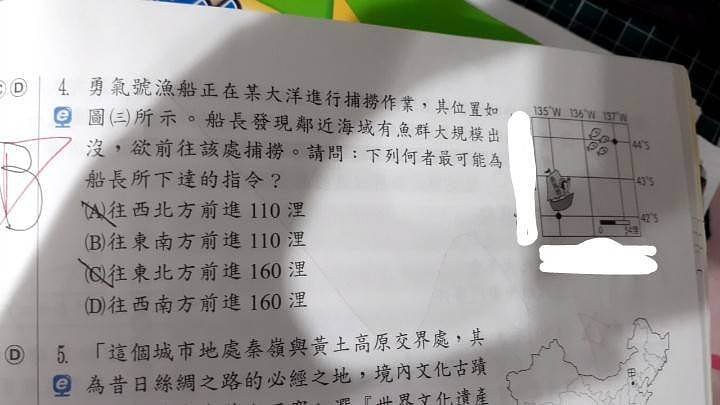 D
4. 勇氣號漁船正在某大洋進行捕撈作業，其位置如
圖㈢所示。船長發現鄰近海域有魚群大規模出
沒，欲前往該處捕撈。請問：下列何者最可能為
船長所下達的指令？
(A)往西北方前進 110 浬
(B)往東南方前進 110 浬
(C)往東北方前進 160 浬
(D)往西南方前進 160 浬
B
135°W 136°W 137°W
44°S
43°S
42°S
0
D
5. 「這個城市地處秦嶺與黃土高原交界處，其
為昔日絲綢之路的必經之地，境內文化古蹟
『世界文化遺產
甲